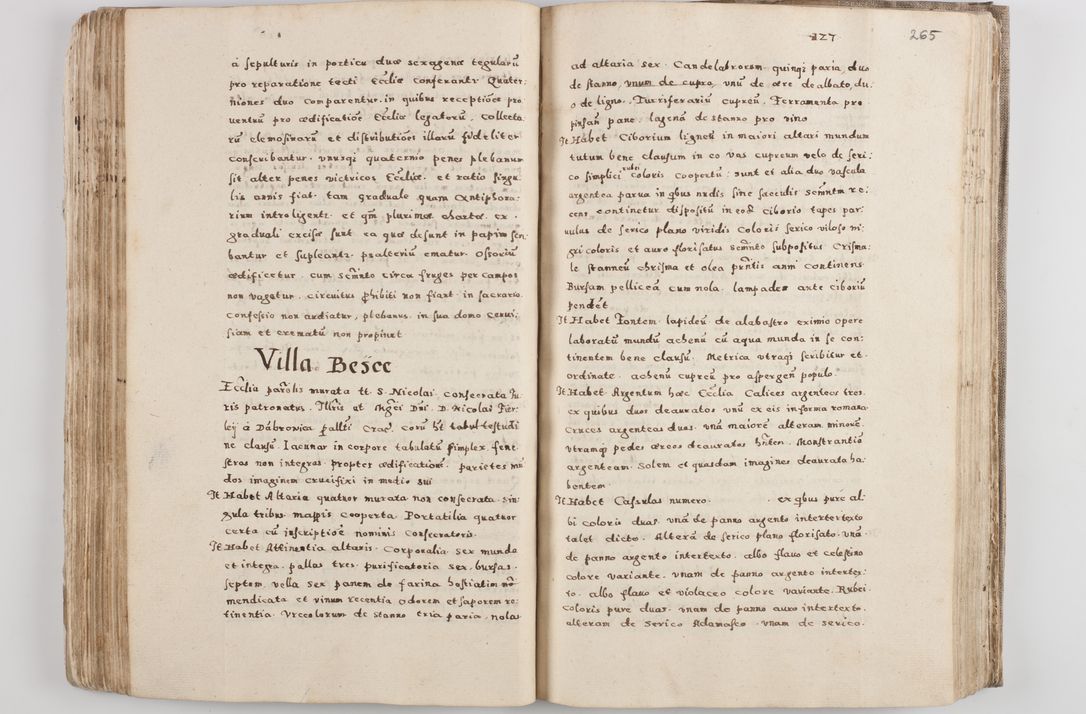 à sepulturis in porticu duæ sexagenæ tegularũ
pro reparatione tecti Ec̃cliæ conferantr Quater:
niones duo comparentur. in quibus receptiões pro
uentuũ pro ædificatiõe Ec̃cliæ legatorũ. Collecta
rũ elemosinarũ et distributiões illarũ fideliter
conscribantur. vnusqz quaternio penes plebanum
sit alter penes victricos Ec̃cliæ. et ratio singu
lis annis fiat. tam graduale quam Antiphona:
rium introligentr. et qm̃ plurimæ chartæ ex
graduali excisæ sunt ea quæ desunt in papiro scri
bantur et supleantr. psalteriũ ematur. Ostoriũ
ædificetur. cum semẽnto circa fruges per campos
non vagetur. circuitus phibiti non fiant. in sacrario
confessio non audiatur, plebanus. in sua domo ceruisi
siam et crematũ non propinet
Villa Besce
Ec̃clia parõlis murata tt. S. Nicolai. consecrata Iu
ris patronatus. Illris et Mgc̃i Dñi. D. Nicolai Fier
leÿ à Dabrowica pallti Crac. corũ ht̃ tabul testudi
ne clausũ. Lacunar in corpore tabulatũ simplex. fene
stras non integras. propter ædificationẽ. parietes mũ
dos imaginem crucifixi in medio sui
It Habet Altaria quatuor murata non consecrata. sin
gula tribus mappis cooperta. Portatilia quatuor
certa cũ inscriptiõe nominis consecratoris.
It Habet Attinentia altaris. Corporalia sex munda
et integra. pallas tres. purificatoria sex. bursas.
septem. vella sex panem de farina hostiatim nõ
mendicata et vinum recentia odorem et saporem re:
tinentia. Vrceolorum de stanno tria paria. nolas
127 265
ad altaria sex. Candelabrorum quinqz paria, duo
de stanno, vnum de cupro, vnũ de ære dealbato, du
o de ligno. Turriferariũ cupreũ. Ferramenta pro
pinsan pane. lagenã de stanno pro vino
It Habet Ciborium ligneũ in maiori altari mundum
tutum bene clausum in eo vas cupreum velo de seri:
co simplici rubei coloris coopertũ: sunt et alia duo vascula
argentea parua in qbus nudis sine sacculis semñtm re:
cens continetur dispositũ in eodẽ ciborio tapes par
uulus de serico plano viridis coloris serico viloso ni
gri coloris et auro florisatus semẽnto subpositus Crisma:
le stanneũ chrisma et olea pñtis anni continens
Bursam pelliceã cum nola. lampadem ante ciboriũ
pendẽt
It Habet Fontem lapideũ de alabastro eximio opere
laboratũ mundũ achenũ cũ aqua munda in se con:
tinentem bene clausũ. Metrica vtraqz scribitur et
ordinate. achenũ cupreũ pro aspergen populo
It Habet Argentum hæc Ec̃clia Calices argenteos tres.
ex quibus duos deauratos vnũ ex eis in forma romana
cruces argenteas duas. vnã maiorẽ alteram minorẽ.
vtramqz pedes æreos deauratos hñtem. Monstrantiã
argenteam. Solem et quasdam imagines deaurata ha
bentem.
It Habet Casulas numero. ex qbus puræ al:
bi coloris duas. vnã de panno argento intertertexto
talet dicto. Alterã de serico plano florisato. vnã
de panno argento intertexto. albo flauo et celestino
colore variante. vnam de panno argento intertex:
to. albo flauo et violaceo colore variante. Rubei
coloris puræ duas. vnam de panno auro intertexto.
alteram de serico Adamasco. vnam de serico.